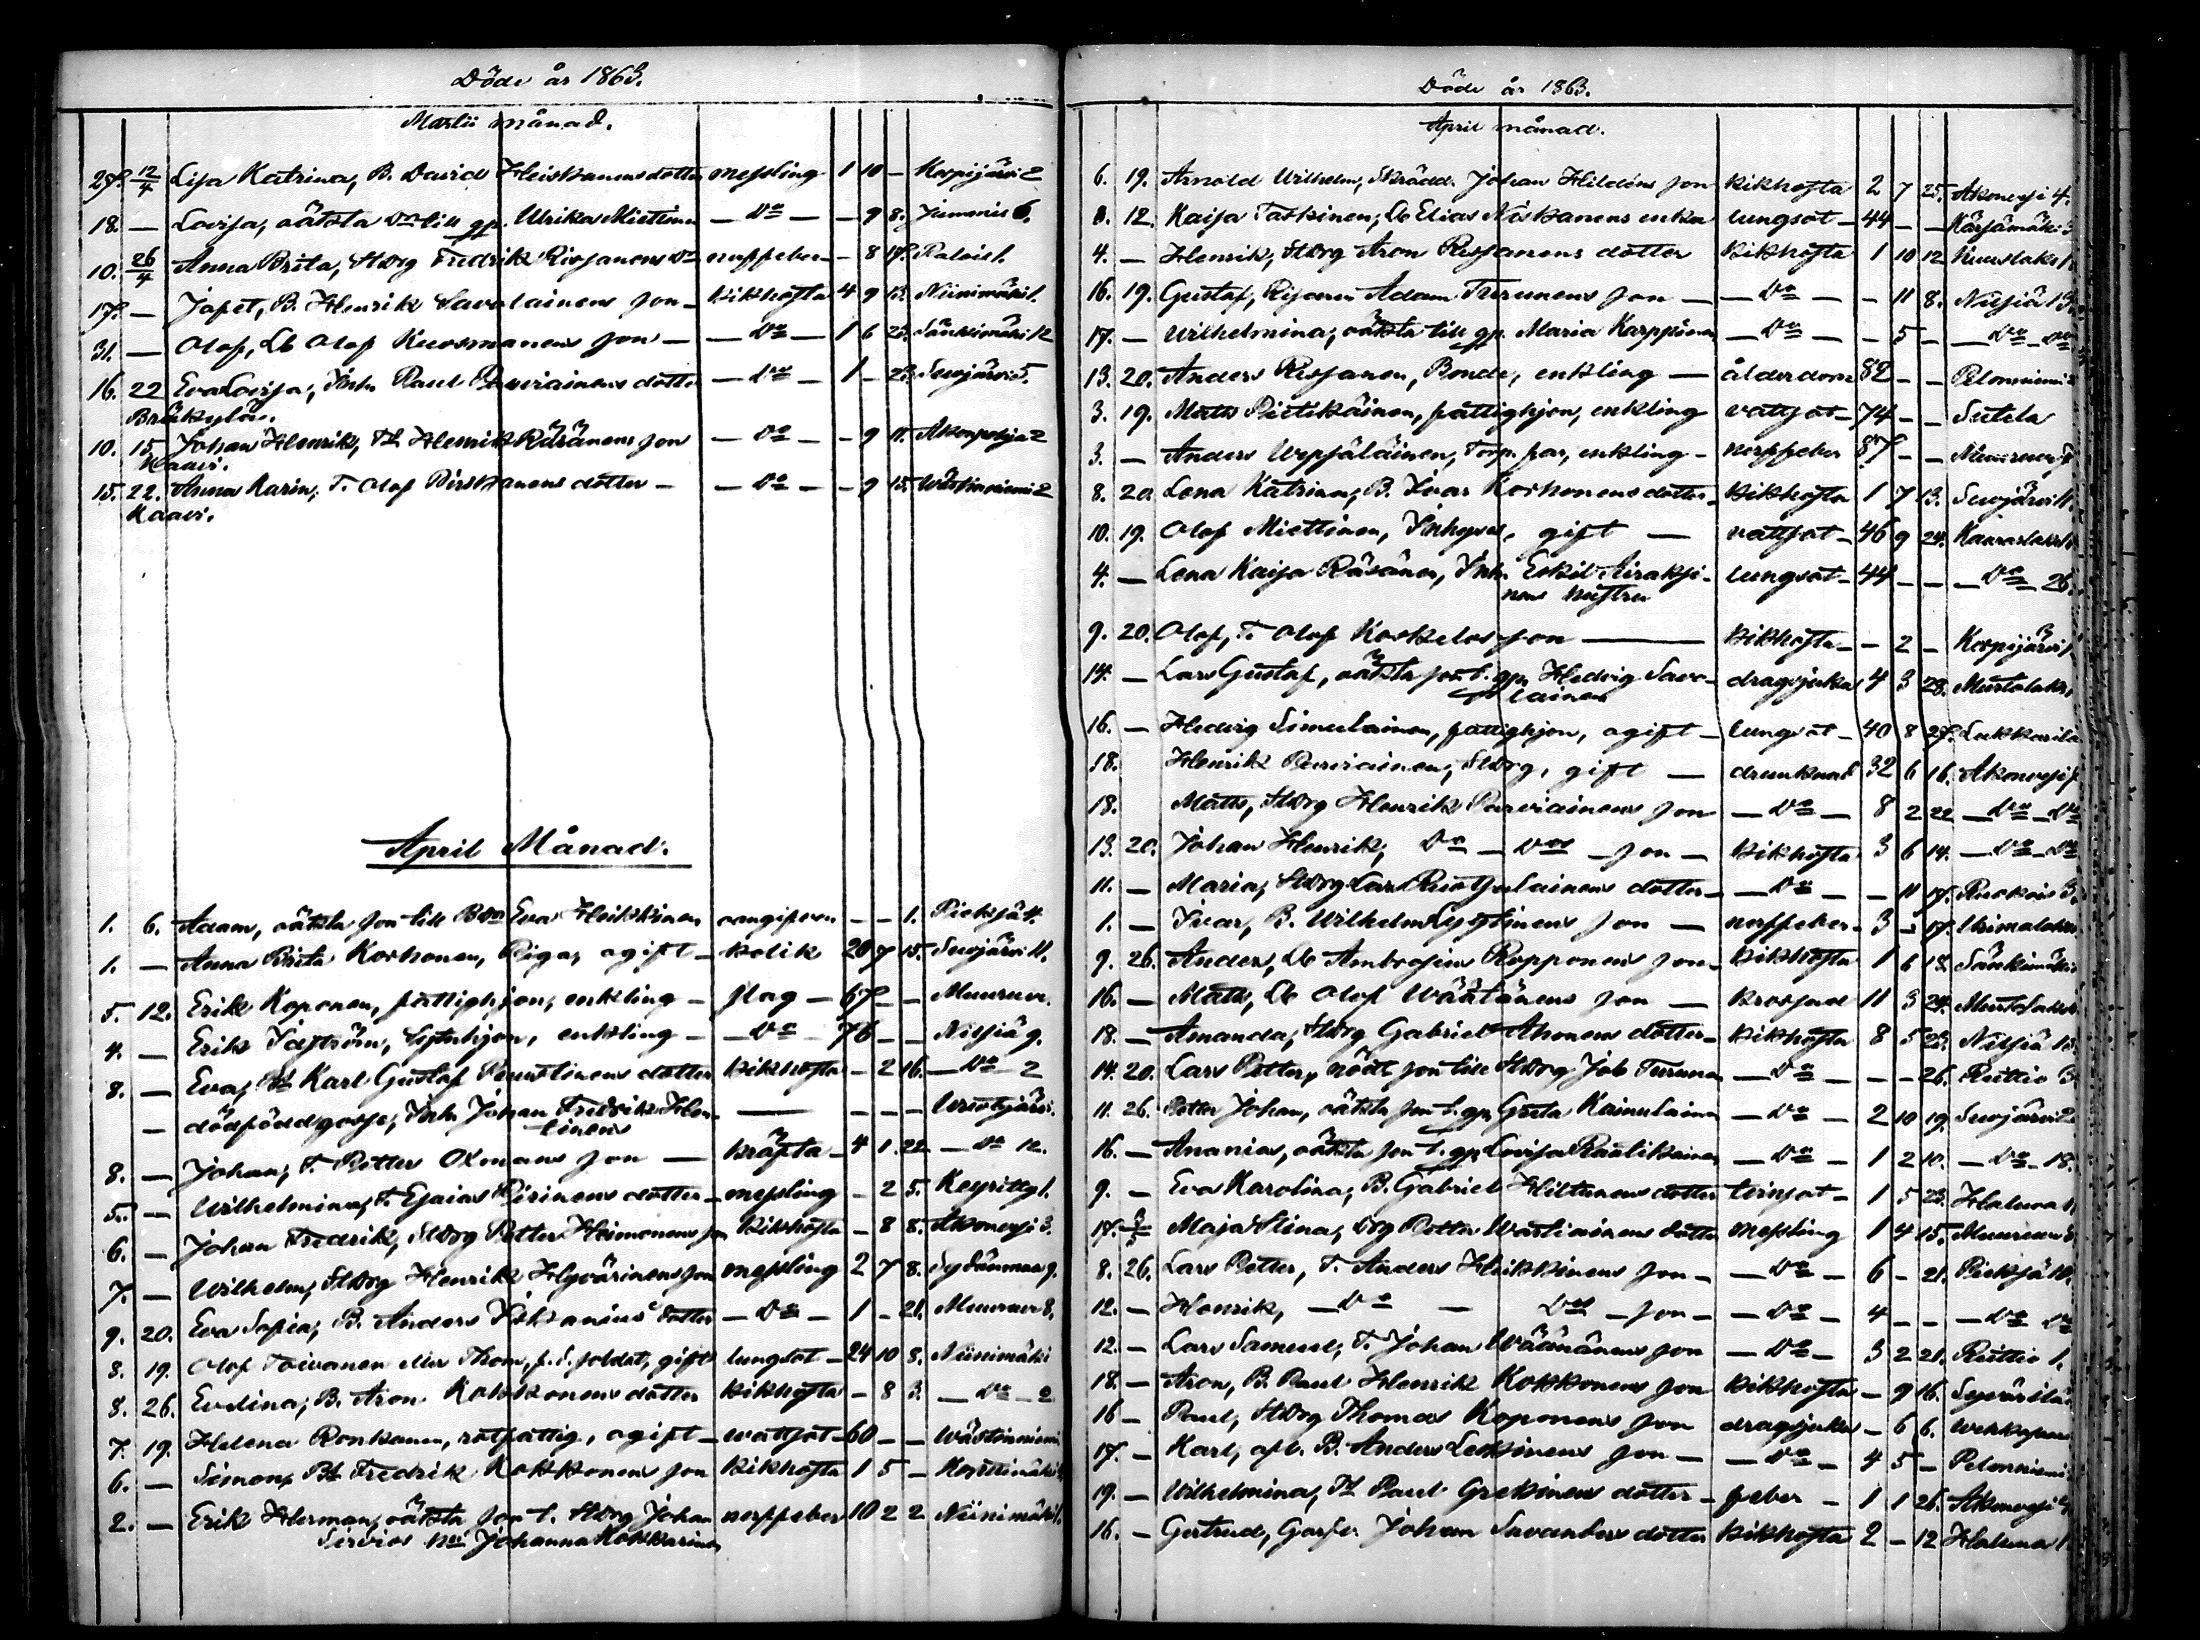 Döde år 1863.
Martii månad.
28. 12/4 Lisa Katrina, B. David Heiskanens dotter messling 1 10 – Korpijärvi 2
18. – Lovisa, oäkta Dr till gp. Ulrika Miettinen – Do – – 9 8. 6.
10. 26/4 Anna Brita, StDrg Fredrik Rissanens Dr nerffeber – 8 17. Palois 1.
17. – Japet, B. Henrik Savolainens son – kikhosta 4 9 13. Niinimäki 1.
31. – Olof, Lb Olof Kuosmanens son – – Do – 1 6 23. Sänkimäki 12
16. 22 Eva Lovisa, Inh. Paul Parviainens dotter – Do – 1 – 23. Suojärvi 5.
Bräkylä.
10. 15. Johan Henrik, Tl Henrik Räsänens son – Do – – 9 11. Akonpohja 2
Kaavi.
15. 22. Anna Karin, T. Olof Pirskanens dotter – – Do – – 9 15. Wästinniemi 2
Kaavi.
April Månad.
1. 6. Adam, oäkta son till BDr Eva Heikkinen oangifven – – 1. Pieksä 4.
1. – Anna Brita Korhonen, Piga, ogift – kolik 20 7 15. Suojärvi 11.
5. 12. Erik Koponen, fattighjon, enkling – slag – 67 – – Muuruv.
4. – Erik Idström, Sytnhjon, enkling – – Do – 76 – – Nilsiä 9.
8. – Eva, Bl Karl Gustaf Puustinens dotter kikhosta – 2 16. – Do – 2
– dödfödd gosse, Inh. Johan Fredrik Hen- – – – – Wuotjärvi.
tinens
8. – Johan, T. Petter Oxmans son – kräfta – 4 1 22 – Do 12.
5. – Wilhelmina, T. Esaias Pirinens dotter – messling – 2 5. Keyritty 1.
6. – Johan Fredrik, StDrg Petter Heimonens son kikhosta – 8 8. Akonvesi 3.
7. – Wilhelm, StDrg Henrik Hyvärinens son messling 2 7 8. Sydänmaa 9.
9. 20. Eva Sofia, B. Anders Iskanius dotter – Do – 1 – 21. Muuruv 8.
8. 19. Olof Toivanen eller Thom, f.d. soldat, gift lungsot – 24 10 8. Niinimäki
8. 26. Evelina, B. Aron Kokkonens dotter kikhosta – 8 3. – Do – 2
7. 19. Helena Ronkanen, rotfattig, ogift – wattsot – 60 – – Wästinniemi
6. – Simon, Bl Fredrik Kokkonens son kikhosta 1 5 –
2. – Erik Herman, oäkta son t. StDrg Johan nerffeber 10 2 2 Niinimäki 1.
Servios Johanna Kokkarinen
Döde år 1863.
April månad.
6. 19. Arnold Wilhelm, Skrädd. Johan Hildéns son kikhosta 2 7 25. Akonvesi 4.
8. 12. Kaisa Taskinen, Lb Elias Niskanens enka lungsot – 44 – – Kärsämäki 3
4. – Henrik, StDrg Aron Rissanens dotter kikhosta 1 10 12 Kuuslaks 1
16. 19. Gustaf, Adam Turunens son – – Do – – 11 8. Nilsiä 13
17. – Wilhelmina, oäkta till gp. Maria Karppinen – Do – – 5 – – Do – Do
13. 20. Anders Rissanen, Bonde, enkling – ålderdom 82 – – Pelonniemi 2
3. 19. Matts Pietikäinen, fattighjon, enkling vattsot – 74 – – Sutela
3. – Anders Urpjäläinen, Torp. far, enkling – nerffeber 87 – – Muuruv
8. 20. Lena Katrina, B. Ivar Korhonens dotter – kikhosta 1 7 13. Suojärvi 11.
10. 19. Olof Miettinen, Inhyses, gift – vattsot – 46 9 24. Kaaraslaks
4. – Lena Kaisa Räsänen, Inh. Eskil Airaksi- lungsot – 44 – – – Do – 26.
nens hustru
9. 20. Olof, T. Olof Koskelos son – kikhosta – – 2 – Korpijärvi 1
14. – Lars Gustaf, oäkta son t. gp. Hedvig Savo- dragsjuka 4 3 28. Murtolaks,
lainen
16. – Hedvig Simulainen, fattighjon, ogift – lungsot – 40 8 27. Lukkarila
18. Henrik Parviainen, StDrg, gift – drunknad 32 6 16. Akonvesi
18. Matts, StDrg Henrik Parviainens son – Do – 8 2 22 – Do – Do
13. 20. Johan Henrik, Do – Dos – son – kikhosta 3 6 14. – Do – Do
11. – Maria, StDrg Lars Ruotsalainens dotter – – Do – – 11 17. Ruokois 3.
1. – Ivar, B. Wilhelm Lyytinens son – nerffeber – 3 – 17. Urimolaks
9. 26. Anders, Lb Ambrosius Ropponens son – kikhosta 1 6 18. Sänkimäki
16. – Matts, Lb Olof Wäätänens son – krossad 11 3 24. Murtolaks
18. – Amanda, StDrg Gabriel Ahonens dotter – kikhosta 8 5 23. Nilsiä 13.
14. 20. Lars Petter, nödt son till StDrg Job Turunen – Do – – – 26. Ruttio 3
11. 26. Petter Johan, oäkta son t. gp. Greta Kainulainen – Do – 2 10 19. Suojärvi 2
16. – Ananias, oäkta son t. gp. Lovisa Raatikainen – Do – 1 2 10. – Do – 18.
9. – Eva Karolina, B. Gabriel Hiltunens dotter tvinsot – 1 5 23. Haluna 1
17. 3/5 Maja Stina, Drg Petter Wartiainens dotter messling 1 4 15. Muuruv 3
8. 26. Lars Petter, T. Anders Heikkinens son – – Do – 6 – 21. Pieksä 10.
12. – Henrik, – Do – Dos – son – – Do – 4 – – – Do Do
12. – Lars Samuel, T. Johan Wäänänens son – Do – 3 2 21. Ruttio 1.
18. – Aron, B. Paul Henrik Kokkonens son kikhosta – 9 16.
16 – Paul, StDrg Thomas Koponens son dragsjuka – 6 6.
17. – Karl, afl. B. Anders Leskinens son – – Do – 4 5 – Pelonniemi
19. – Wilhelmina, Tl Paul Grekinens dotter – feber – 1 1 26. Akonvesi
16. – Gertrud, Garfv. Johan Savanders dotter kikhosta 2 – 12 Haluna 1